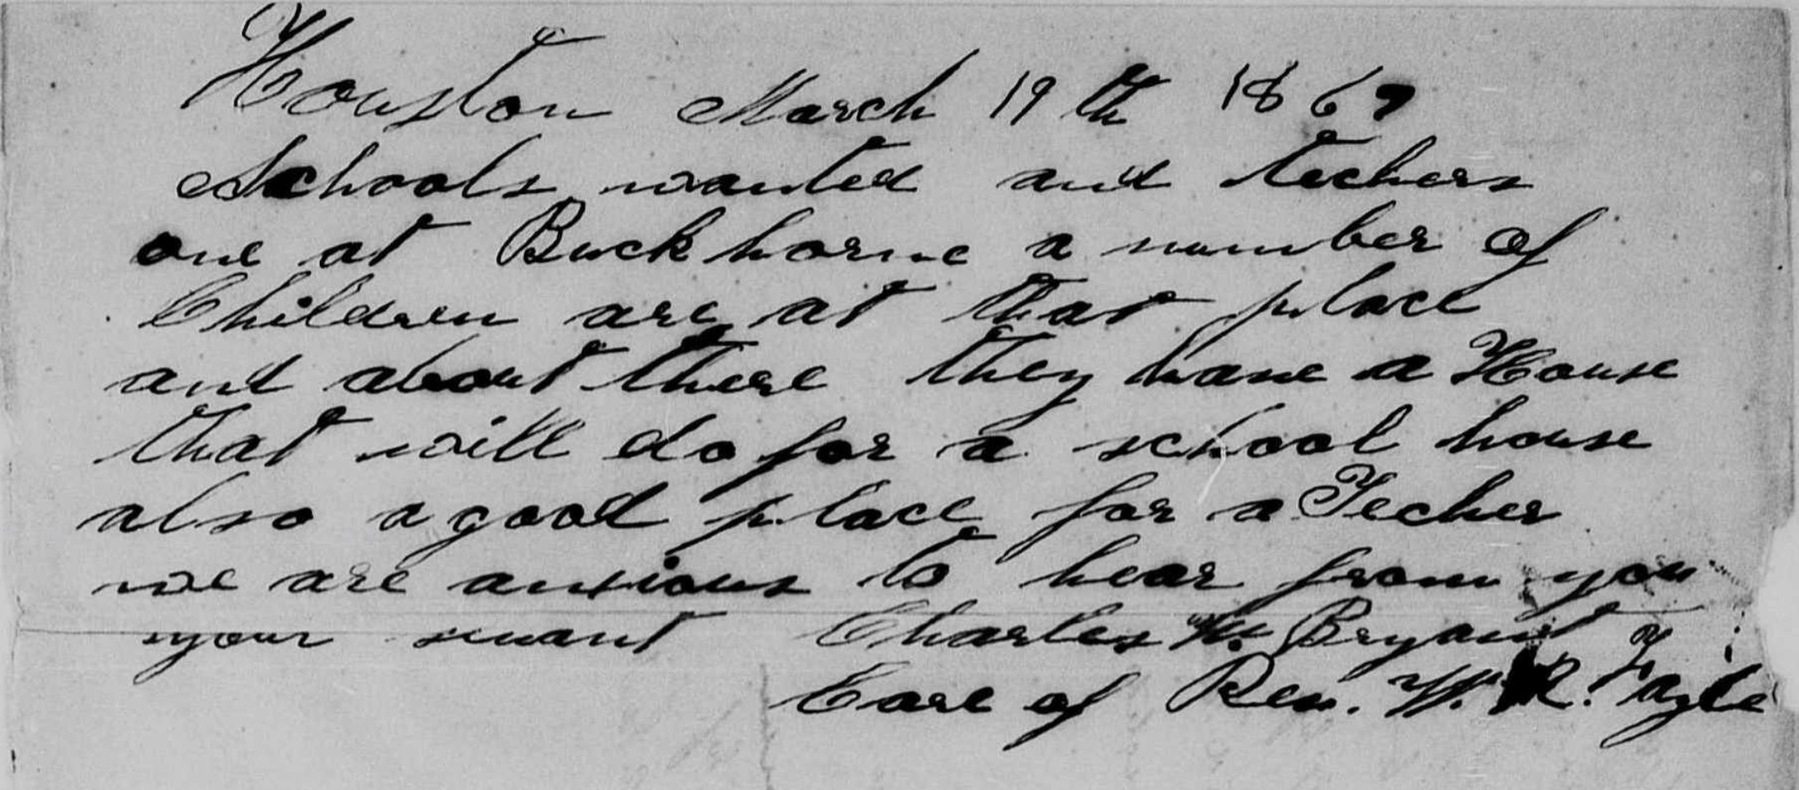 Houston March 19th 1867
Schools wanted and techers
one at Buckhorne a number of
Children are at that place
and about there they have a House
that will do for a school house
also a good place for a Techer
we are anxious to hear from you
your servant Charles W. Bryant
Care of Rev. W. R. Fayle